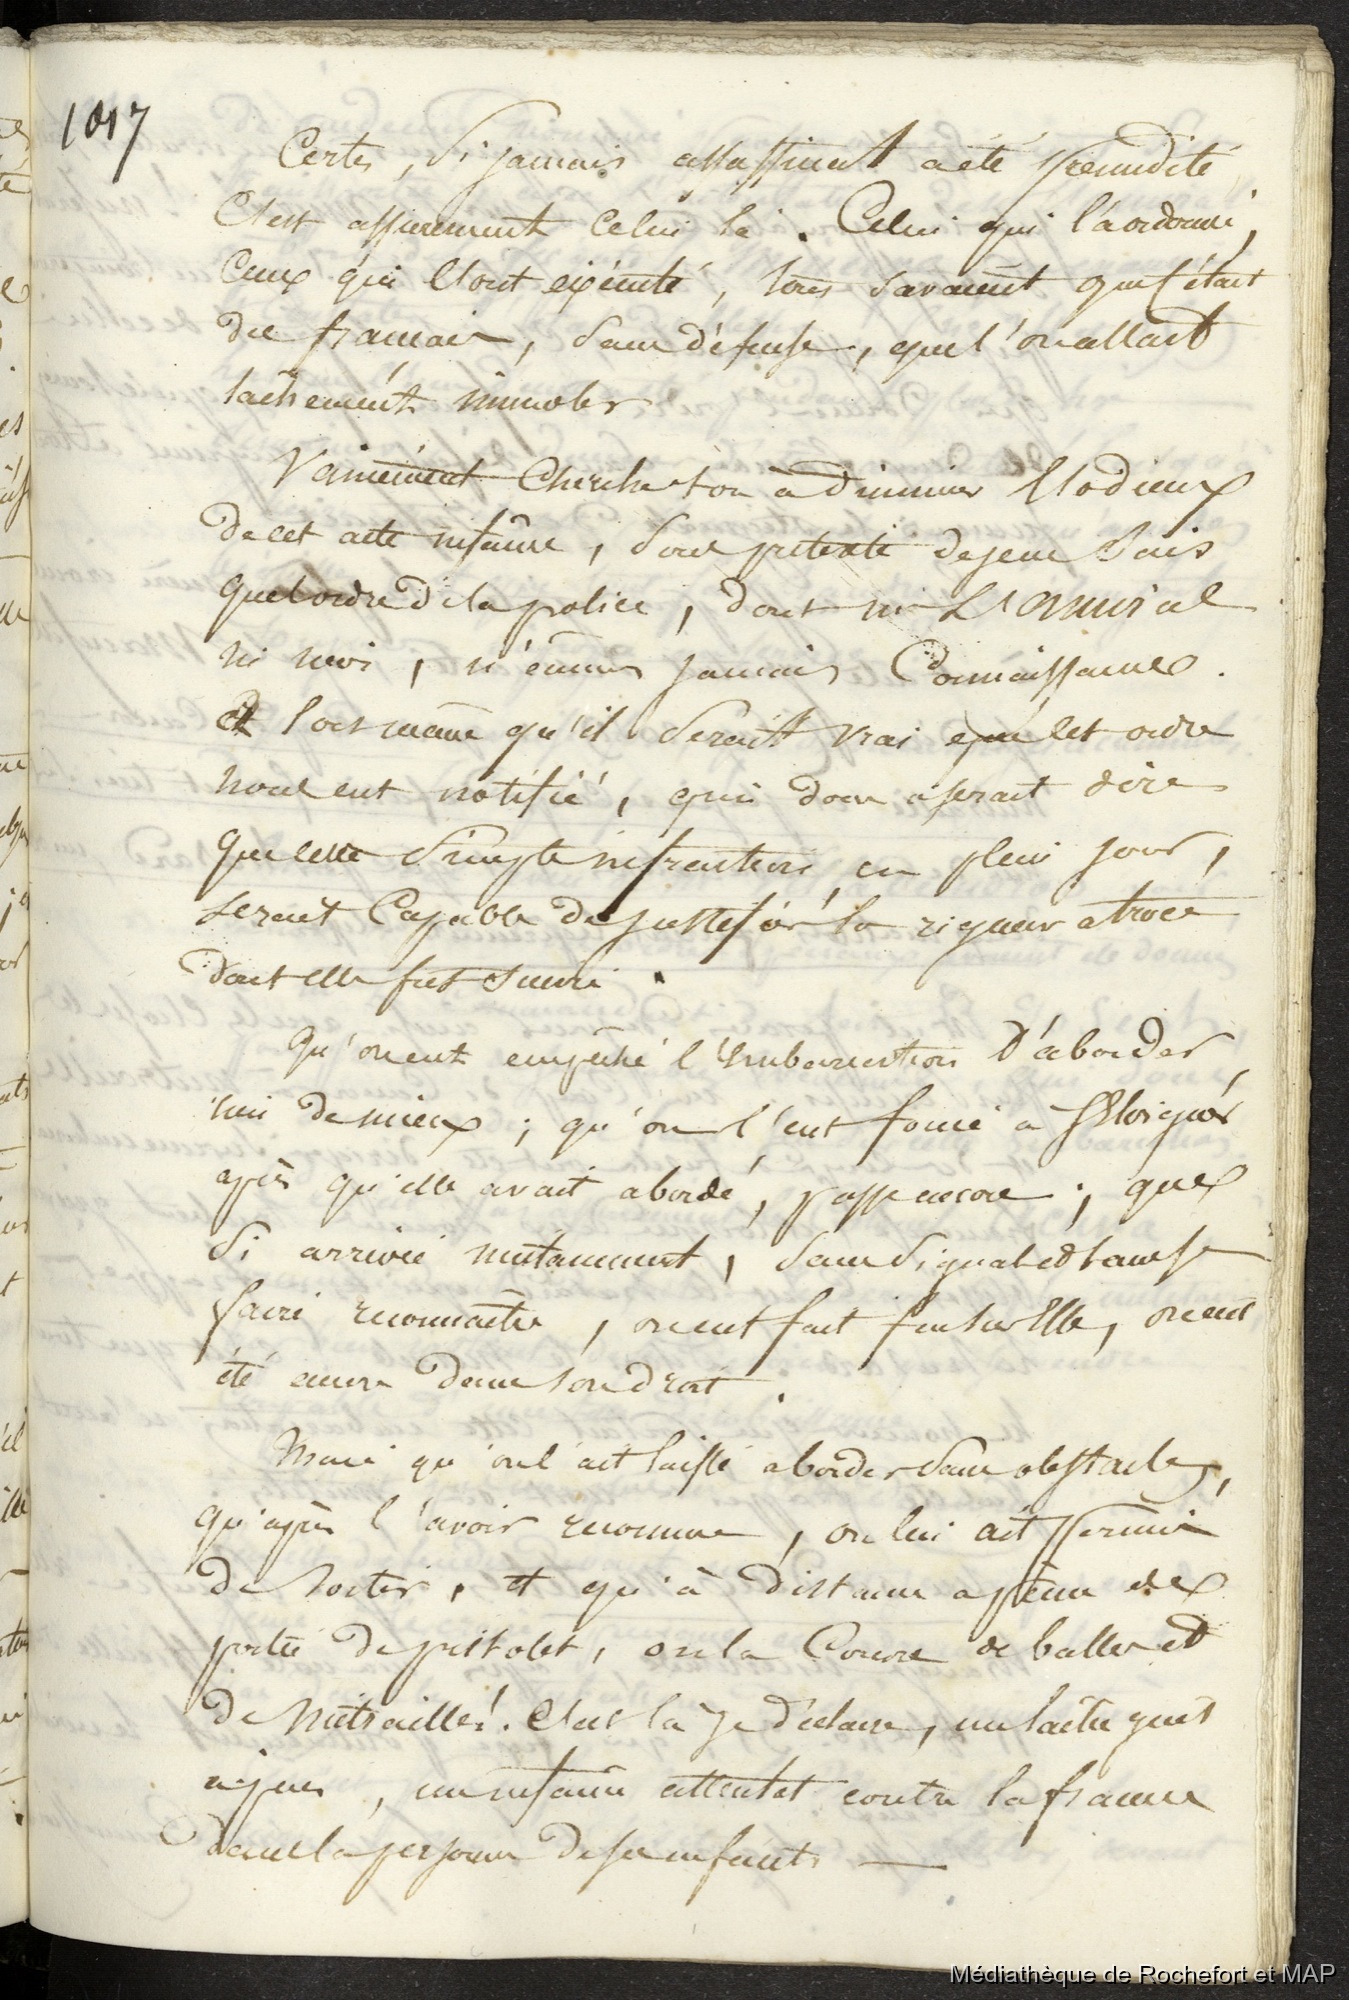 1017
Certes, si jamais assassinat a été prémédité,
C'est assurement celui là. Celui qui l'a ordonné,
Ceux qui l'ont exécuté, tous savaient que c'était
des francais, sans défense, que l'on allait
lachement immoler
Vainement cherche t'on à diminuer l'odieux
de cet acte infâme, sous pretexte de je ne sais
quel ordre de la police, dont ni L'amiral
ni moi, n'eûmes jamais Connaissance.
et lors même qu'il serait vrai que cet ordre
nous eut notifié, qui donc oserait dire
que cette simple infraction, en plein jour,
serait Capable de justifier la rigueur atroce
dont elle fut suivie.
Qu'on eut empêché l'Embarcation d'aborder,
rien de mieux; qu'on l'eut forcé a s'Eloigner
après qu'elle avait abordé, passe encore; que
si arrivée nuitamment, sans signal et sans se
faire reconnaitre, on eut fait feu sur Elle, on eut
été encore dans son droit.
Mais qu'on l'ait laissé aborder sans obstacle,
qu'après l'avoir reconnue, on lui ait permis
de sortir, et qu'à distance a peine de
portée de pistolet, on la Couvre de balles et
de mitraille! C'est là je déclare, un lache guet
apens, un infâme attentat contre la france
dans la personne de ses enfants —
Médiathèque de Rochefort et MAP